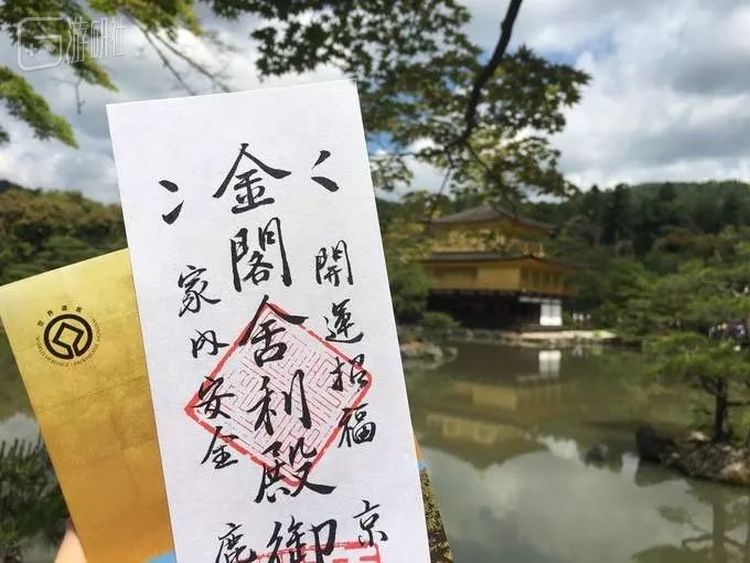 游研社
金閣舎利殿御
開運招福
家内安全
京
鹿
世界遺産
WORLD HERITAGE